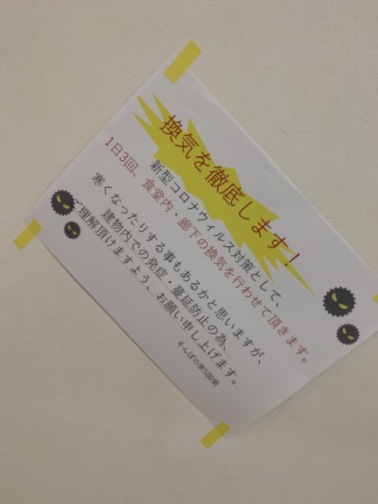 換気を徹底します！
新型コロナウイルス対策として、
1日3回、食堂内・廊下の換気を行わせて頂きます。
寒くなったりする事もあるかと思いますが、
建物内での発症・蔓延防止の為、
ご理解頂けますよう、お願い申し上げます。
そんぽの家S国領